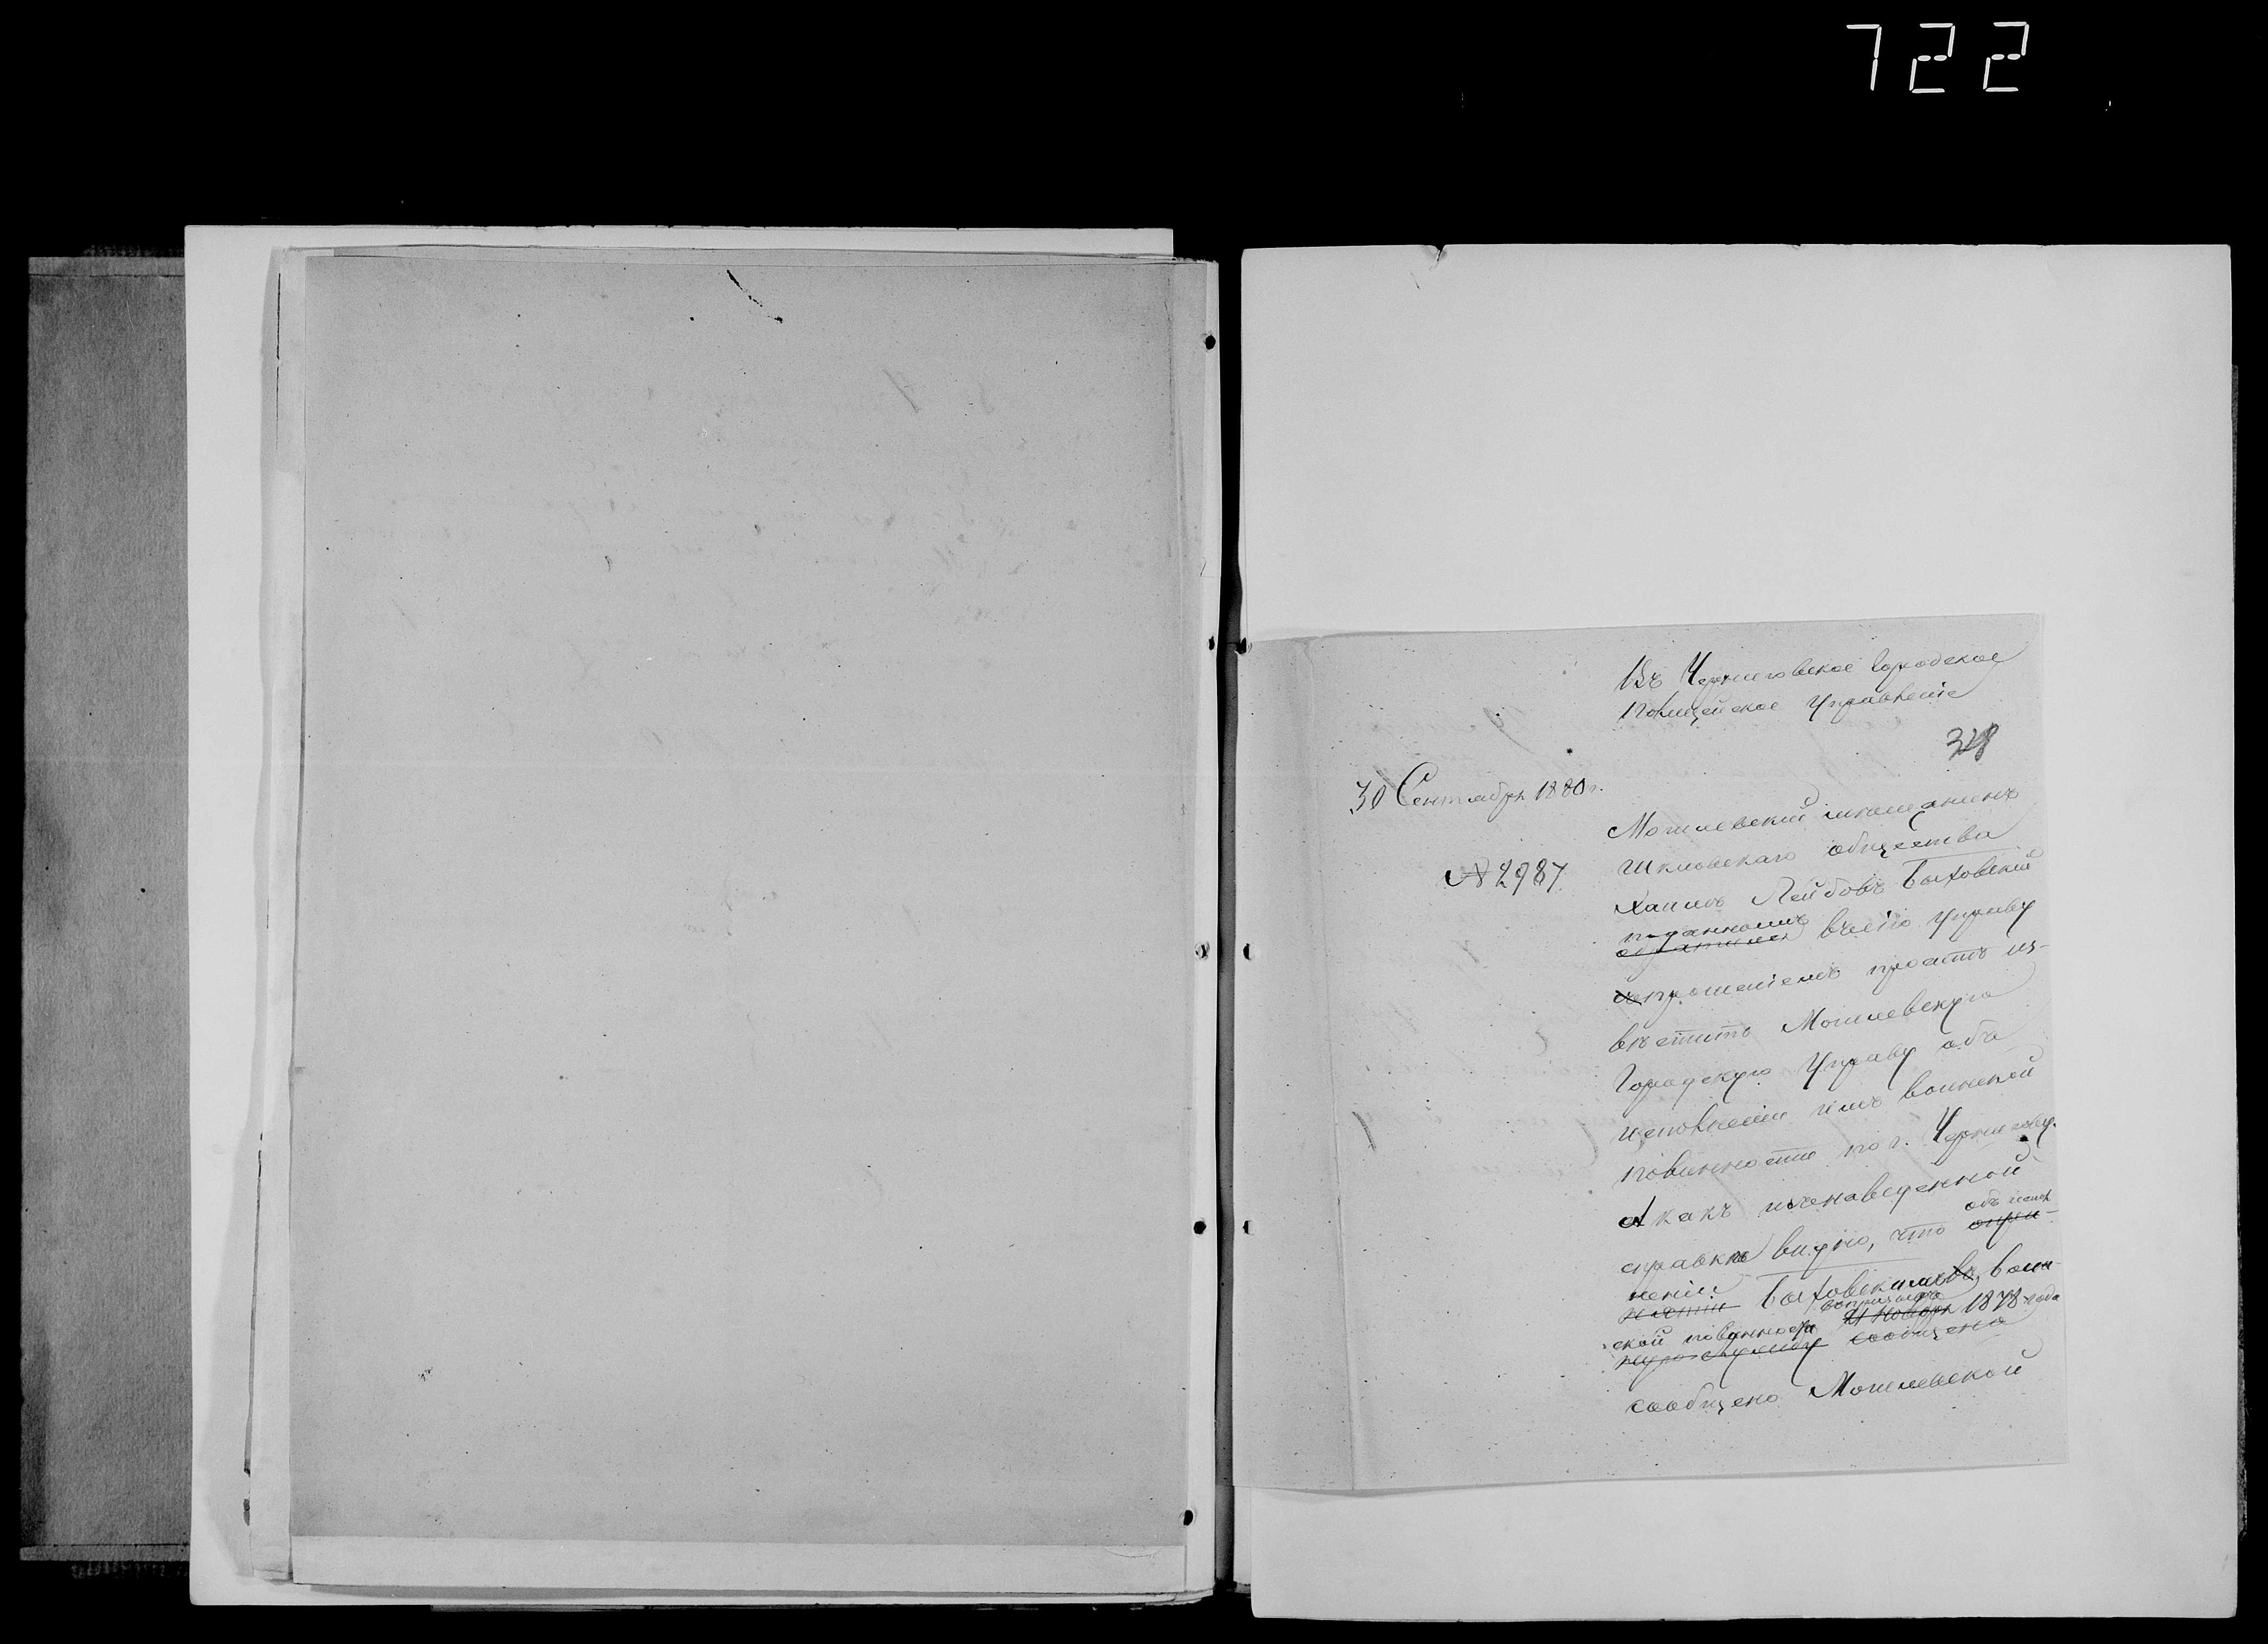 722
Въ Черниговское Городское
Полицейское Управленіе
328
30 Сентября 1880 г.
№ 2987
Могилевскій мѣщанинъ
Шкловскаго общества
Хаимъ Лейбовъ Быховскій
поданномъ
въ сію Управу
прошеніемъ проситъ из-
вѣстить Могилевскую
Городскую Управу объ
исполненіи имъ воинской
повинности по г. Чернигову.
А какъ изъ наведенной
объ испол
справки видно, что
неніи Быховскимъ воин-
ской повинности 21 Ноября 1878 года
сообщено
сообщено Могилевской